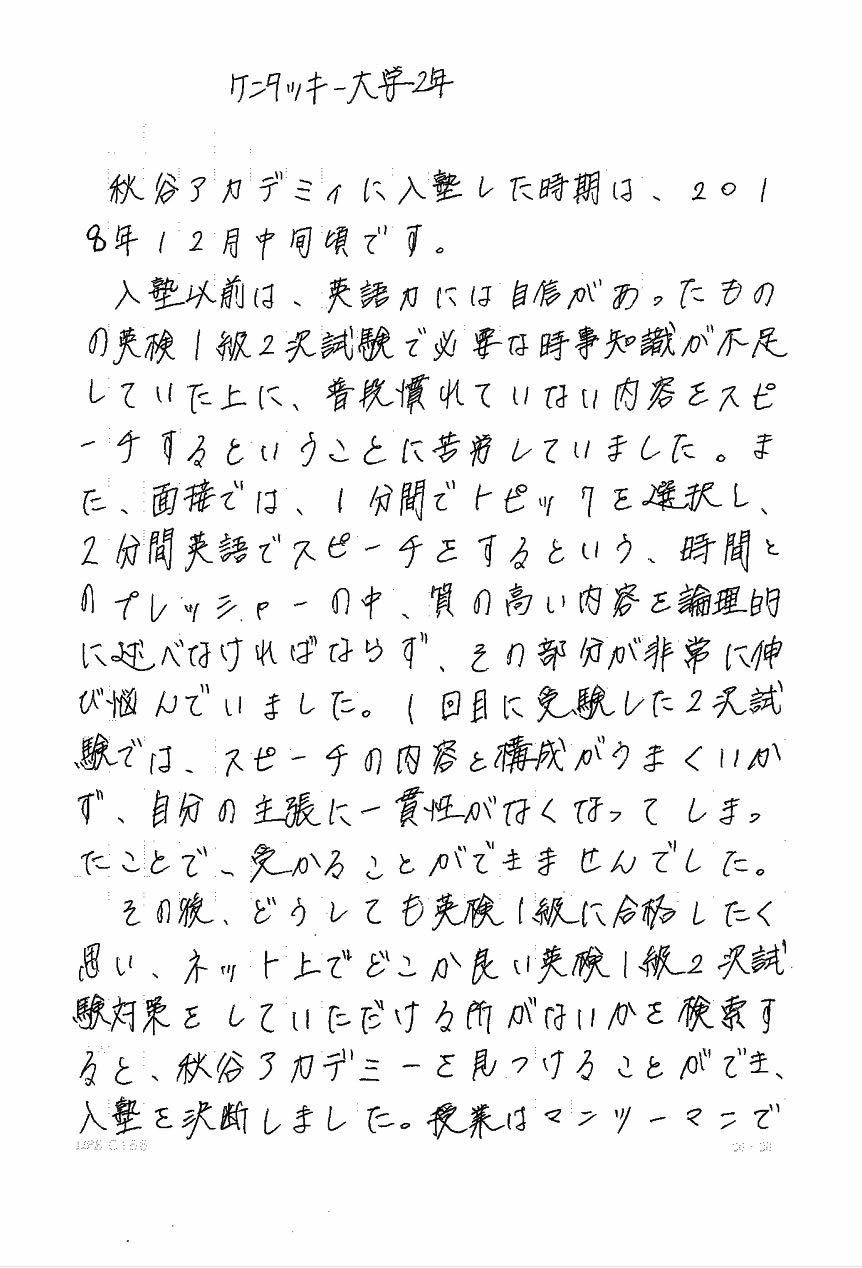 ケンタッキー大学2年
秋谷アカデミィに入塾した時期は、201
8年12月中旬頃です。
入塾以前は、英語力には自信があったもの
の英検1級2次試験で必要な時事知識が不足
していた上に、普段慣れていない内容をスピ
ーチするということに苦労していました。ま
た、面接では、1分間でトピックを選択し、
2分間英語でスピーチをするという、時間と
のプレッシャーの中、質の高い内容を論理的
に述べなければならず、その部分が非常に伸
び悩んでいました。1回目に受験した2次試
験では、スピーチの内容と構成がうまくいか
ず、自分の主張に一貫性がなくなってしまっ
たことで、受かることができませんでした。
その後、どうしても英検1級に合格したく
思い、ネット上でどこか良い英検1級2次試
験対策をしていただける所がないかを検索す
ると、秋谷アカデミーを見つけることができ、
入塾を決断しました。授業はマンツーマンで